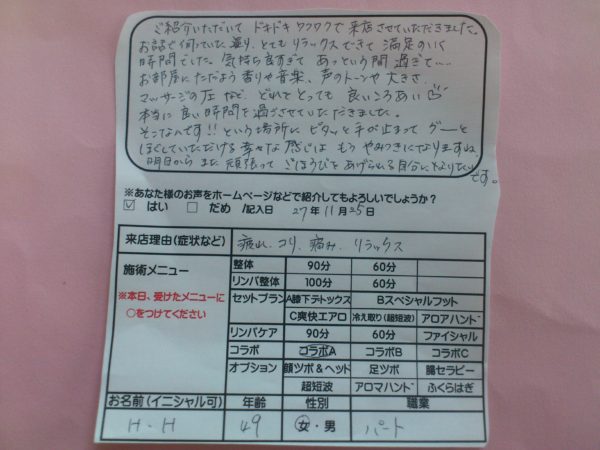 ご紹介いただいて ドキドキワクワクで来店させていただきました。
お話で伺っていた通り、とてもリラックスできて 満足のいく
時間でした。気持ち良すぎて あっという間 過ぎて…
お部屋にただよう香りや音楽、声のトーンや大きさ、
マッサージの圧など どれをとっても 良いころあい
本当に良い時間を過ごさせていただきました。
そこなんです!! という場所に ピタッと手が止まって グーと
ほぐしていただける 幸せな感じは もう やみつきになりますね
明日から また 頑張って ごほうびをあげられる自分になりたい
です。
※あなた様のお声をホームページなどで紹介してもよろしいでしょうか?
☑ はい □ だめ /記入日 27年11月25日
来店理由(症状など) 疲れ、コリ、痛み、リラックス
施術メニュー
※本日、受けたメニューに
○をつけてください
整体 90分 60分
リンパ整体 100分 60分
セットプラン A膝下デトックス Bスペシャルフット
C爽快エアロ 冷え取り(超短波) アロアハンド
リンパケア 90分 60分 ファイシャル
コラボ コラボA コラボB コラボC
オプション 顔ツボ&ヘッド 足ツボ 腸セラピー
超短波 アロマハンド ふくらはぎ
お名前(イニシャル可) 年齢 性別 職業
H・H 49 女・男 パート